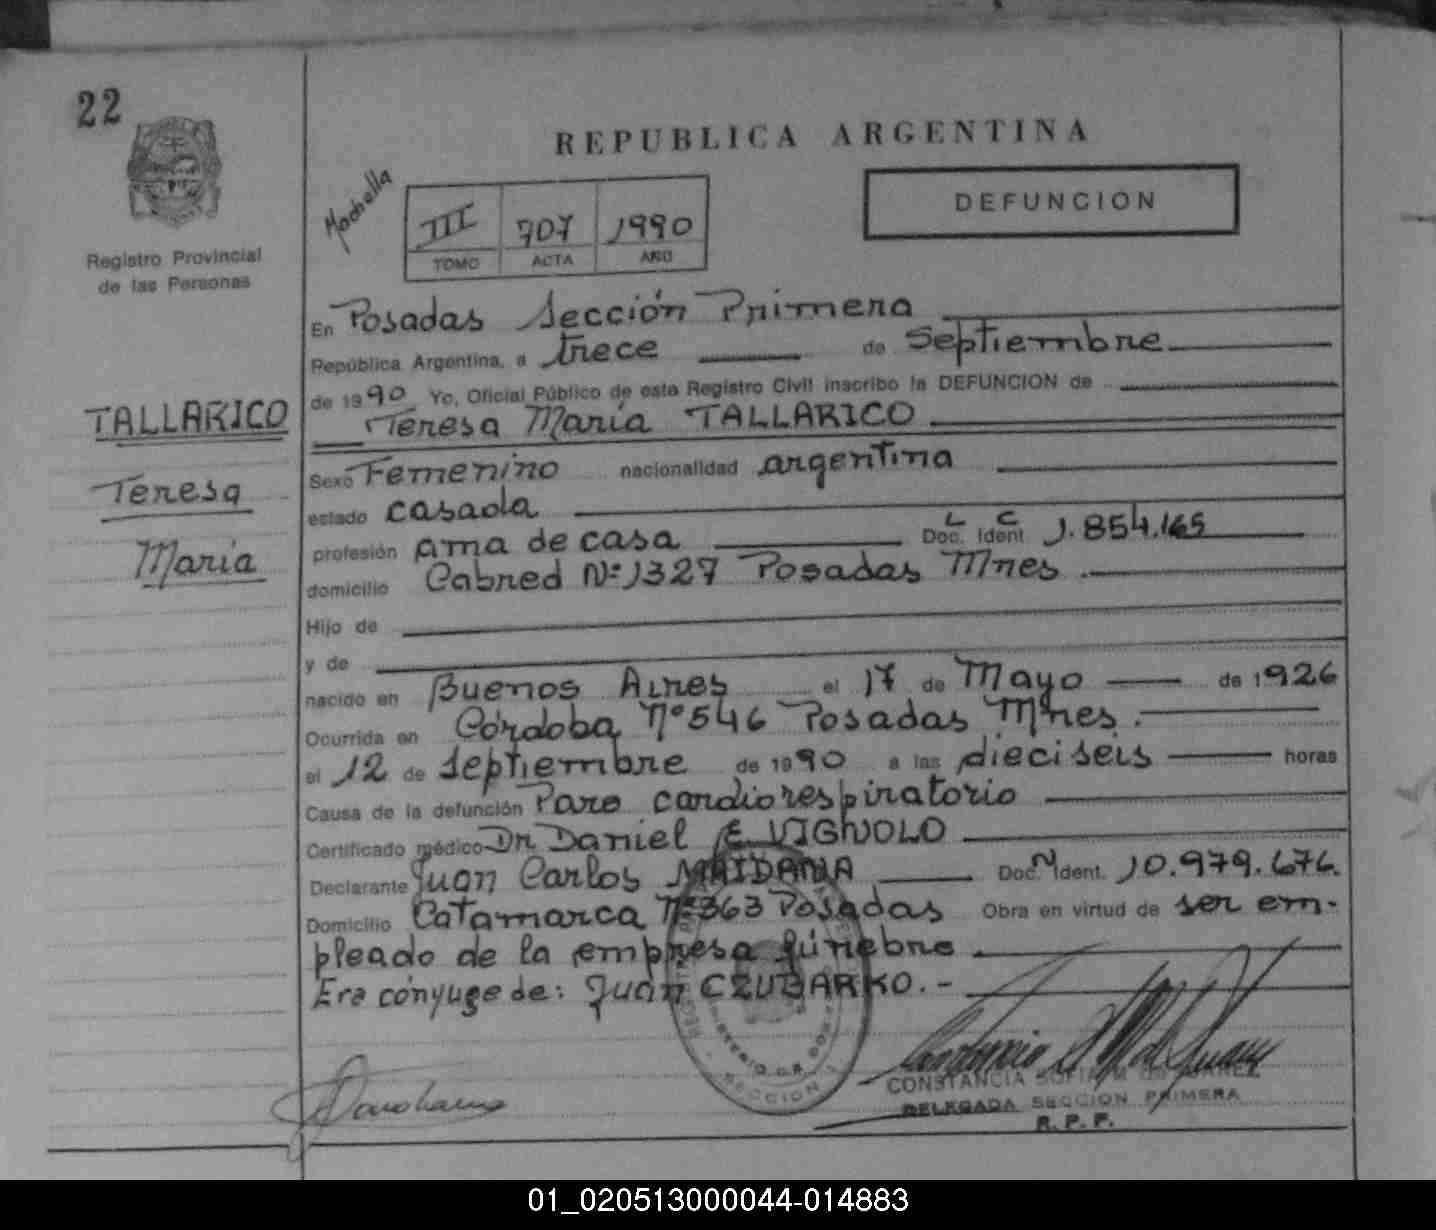 22
REPUBLICA ARGENTINA
DEFUNCION
III 707 1990
TOMO ACTA AÑO
Registro Provincial
de las Personas
TALLARICO
Teresa
María
En Posadas Sección Primera
República Argentina, a trece de Septiembre
de 1990 Yo, Oficial Público de este Registro Civil inscribo la DEFUNCION de
Teresa María TALLARICO
Sexo Femenino nacionalidad argentina
estado casada
L C
profesión ama de casa Doc. Ident 1.854.165
domicilio Cabred Nº 1327 Posadas Mnes.
Hijo de
y de
nacido en Buenos Aires el 17 de Mayo de 1926
Ocurrida en Córdoba Nº 546 Posadas Mnes.
el 12 de Septiembre de 1990 a las dieciseis horas
Causa de la defunción Paro cardiorespiratorio
Certificado médico Dr Daniel E. VIGNOLO
Declarante Juan Carlos MAIDANA Doc. N Ident. 10.979.676.
Domicilio Catamarca Nº 363 Posadas Obra en virtud de ser em-
pleado de la empresa fúnebre
Era cónyuge de: Juan CZUBARKO.-
SECCION 1
CONSTANCIA SOFIA M. DE JUAREZ
DELEGADA SECCION PRIMERA
R. P. P.
01_020513000044-014883